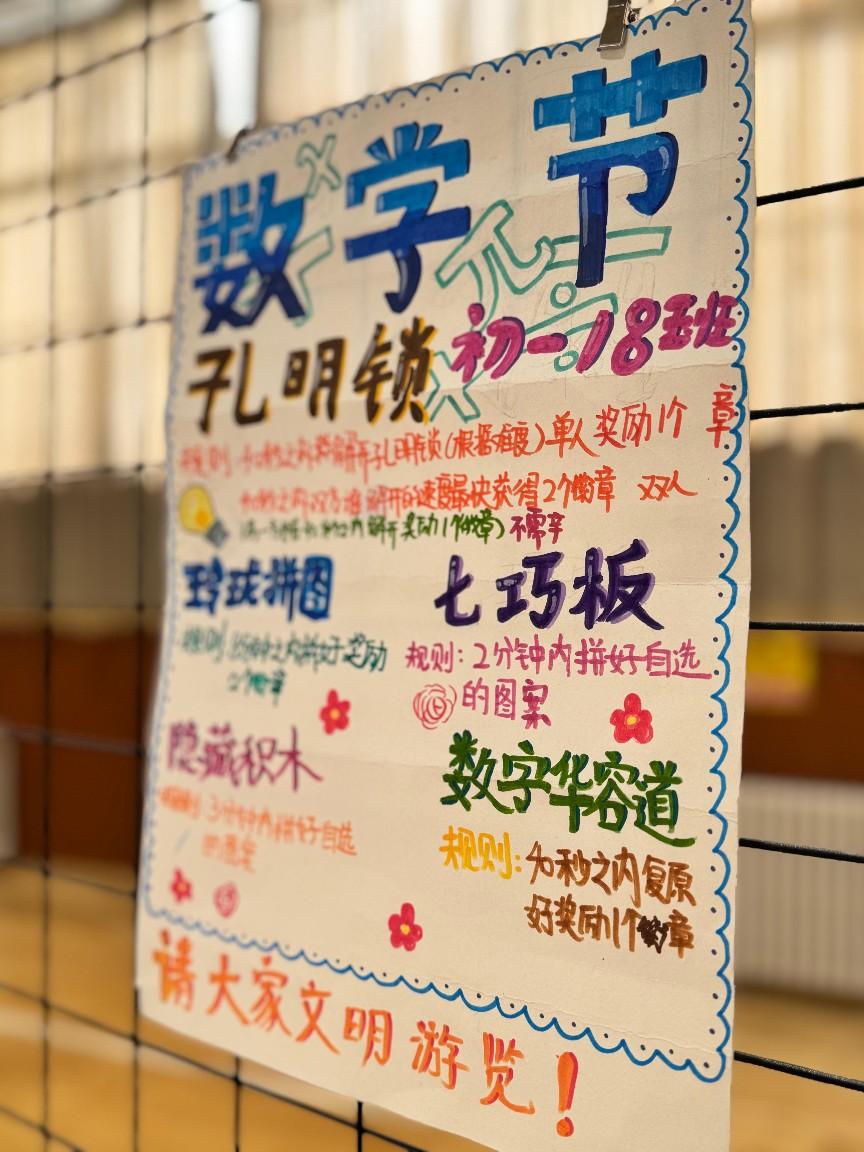 数学节
孔明锁
初一18班
规则:40秒之内解开孔明锁(根据难度)单人奖励1个章
40秒之内双方谁解开的速度最快获得2个徽章 双人
40秒之内解开奖励1个徽章)不需辛
玲珑拼图
七巧板
规则:之内拼好奖励
2个徽章
规则:2分钟内拼好自选
的图案
隐藏积木
规则:3分钟内拼好自选
的图案
数字华容道
规则:40秒之内复原
好奖励1个徽章
请大家文明游览!